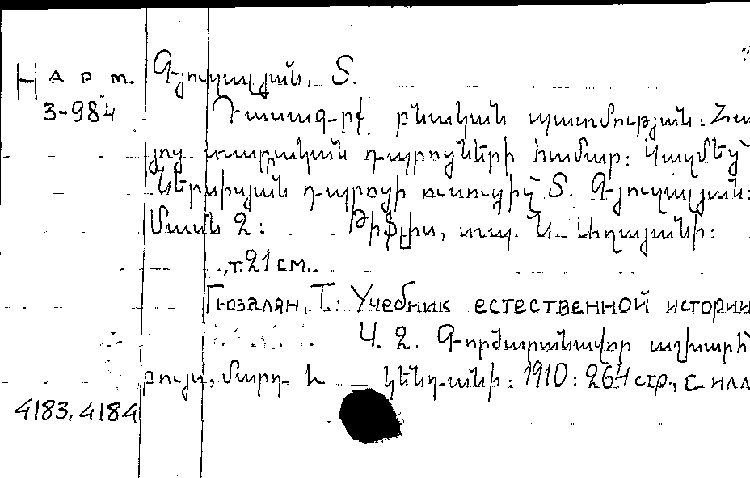 Нарт. Գյուզալյան, Տ.
3-984 Դասագ-րք բնական պատմության: Հա
յոց տարրական դպրոցների համար: Կազմեց՝
Ներսիսյան դպրոցի ուսուցիչ Տ. Գյուզալյան:
Մասն 2: Թիֆլիս, տպ. Ն. Աղայանի:
т. 21 см.
Гюзалян, Т. Учебник естественной истории
Ч. 2. Գործարանավոր աշխարհ՝
բույս, մարդ և կենդանի: 1910: 264 стр., с илл
4183, 4184